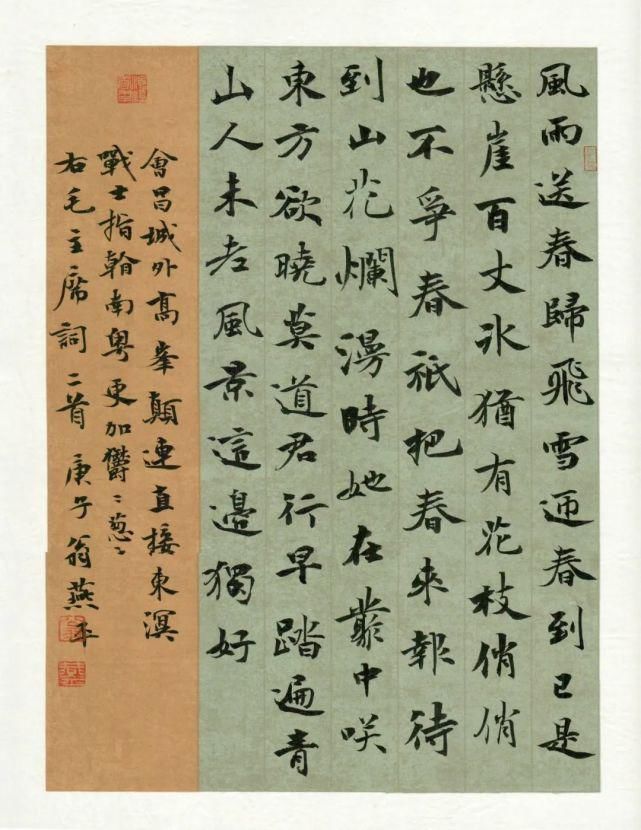 風雨送春歸飛雪迎春到已是
懸崖百丈冰猶有花枝俏俏
也不爭春祇把春來報待
到山花爛漫時她在叢中咲
東方欲曉莫道君行早踏遍青
山人未老風景這邊獨好
會昌城外高峯顛連直接東溟
戰士指幹南粵更加欝〻葱〻
右毛主席詞二首庚子翁燕平